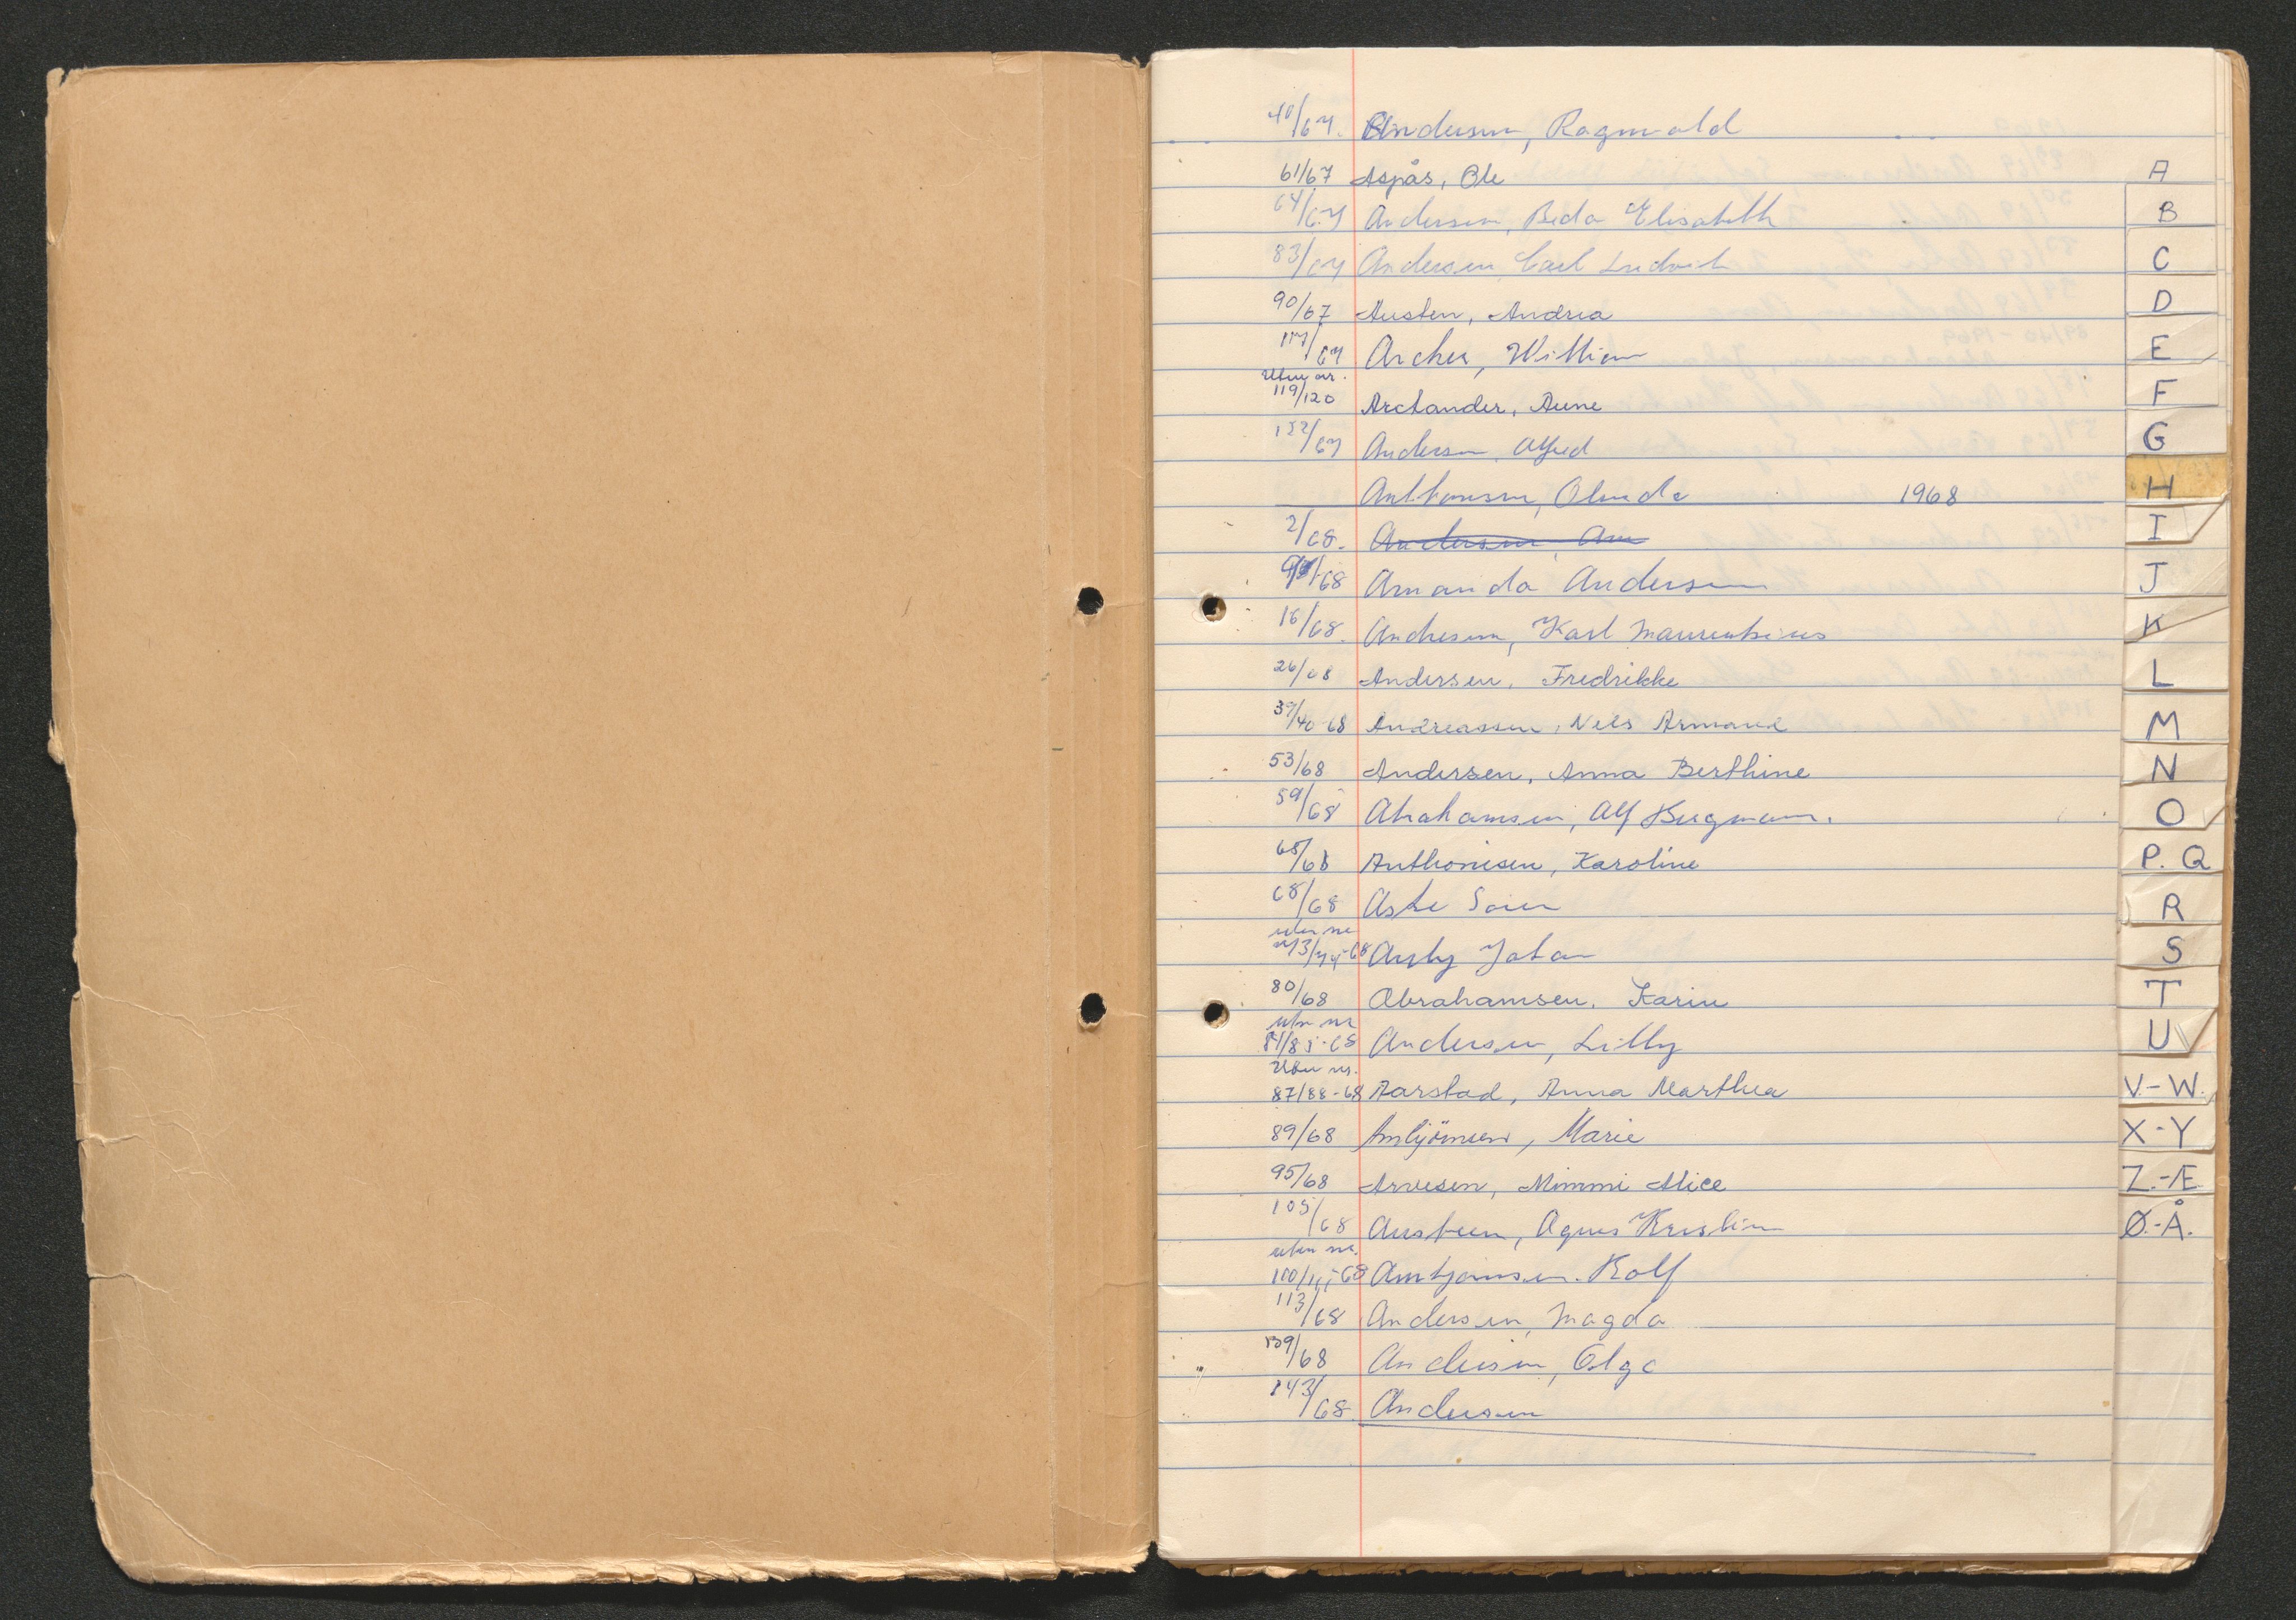 40/67. Andersen, Ragnvald
61/67 Aspås, Ole
64/67 Andersen, Beda Elisabeth
83/67 Andersen Carl Ludvik
90/67 Austen, Andrea
117/67 Archer, William
119/120 Arctander, Aune
152/67 Andersen Alfred
Anthonsen, Olinda 1968
2/68. Andersen, Am
68 Amanda Andersen
16/68. Andresen, Karl Maurentsius
26/68 Andersen, Fredrikke
39/40-68 Andreassen, Nils Armand
53/68 Andersen, Anna Berthine
59/68 Abrahamsen, Alf Bergmann.
65/68 Anthonisen, Karoline
68/68 Aske
uten nr
73/74-68 Johan
80/68 Abrahamsen, Karin
uten nr
81/83-68 Andersen, Lilly
Uten nr.
87/88-68 Aarstad, Anna Marthea
89/68 Marie
95/68 Arvesen, Mimmi Alice
105/68 Austeen, Agnes Kristin
uten nr.
68 Rolf
113/68 Andersen, Magda
139/68 Andersen, Olga
143/68 Andersen
A
B
C
D
E
F
G
H
I
J
K
L
M
N
O
P. Q
R
S
T
U
V.-W.
X-Y
Z.-Æ
Ø.-Å.